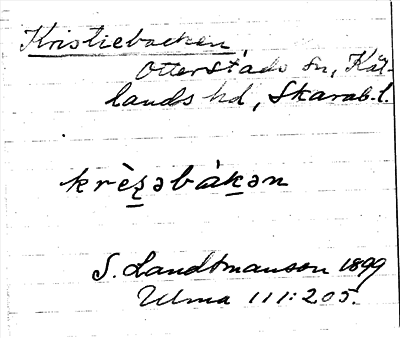 Kristiebacken,
Otterstads sn, Kål-
lands hd, Skarab. l.
krèʂəbàkən
S. Landtmanson 1899
Ulma 111:205.